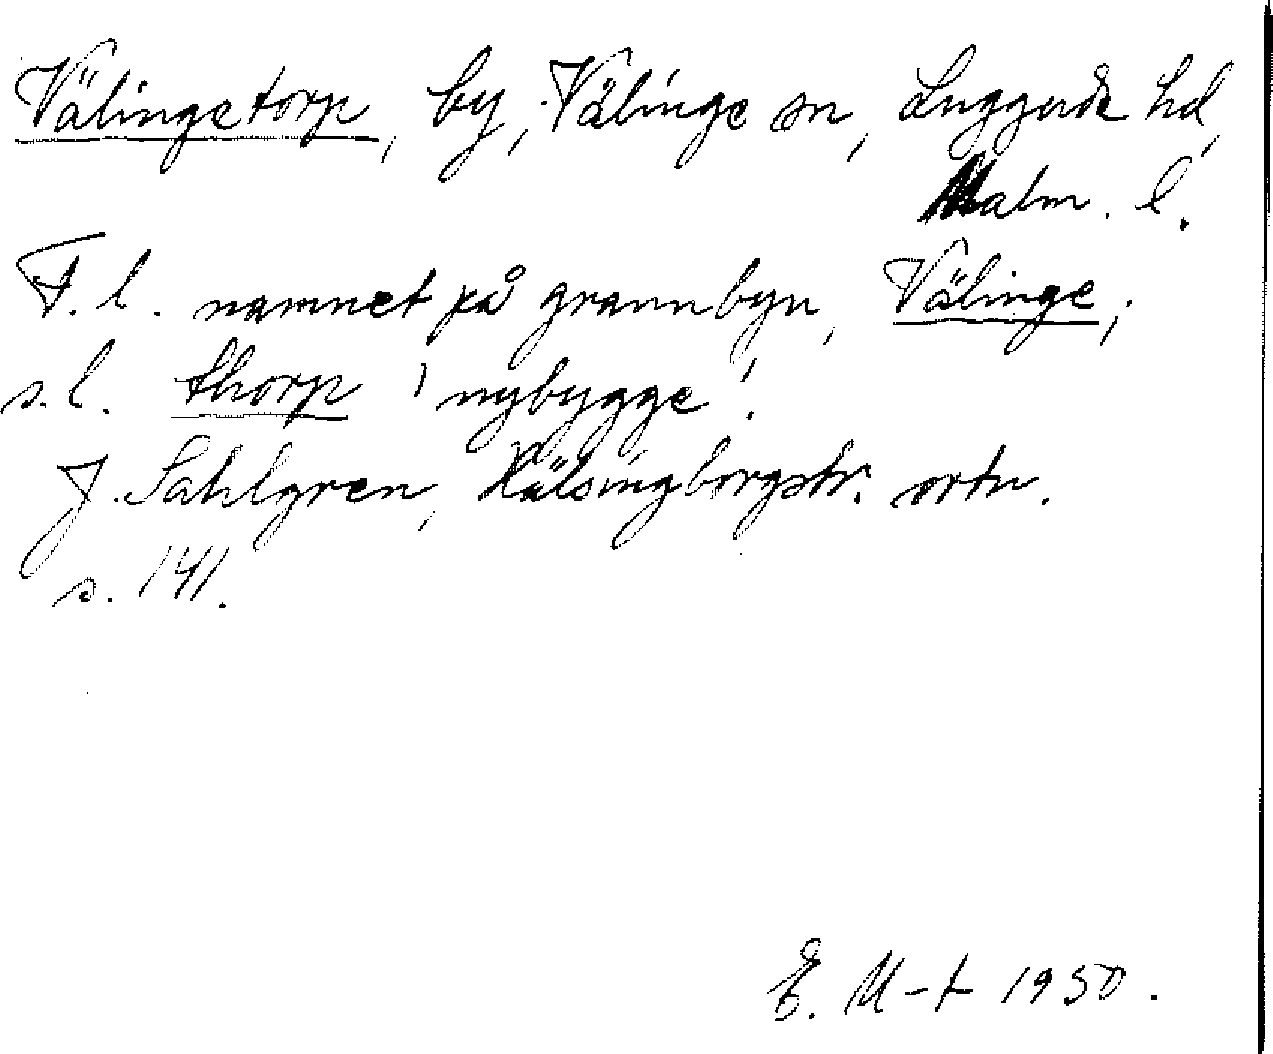 Välingetorp, by, Välinge sn, Luggude hd,
Malm. l.
F. l. namnet på grannbyn, Välinge;
s. l. thorp 'nybygge'.
J. Sahlgren, Hälsingborgstr. ortn.
s. 141.
E. M-t 1950.